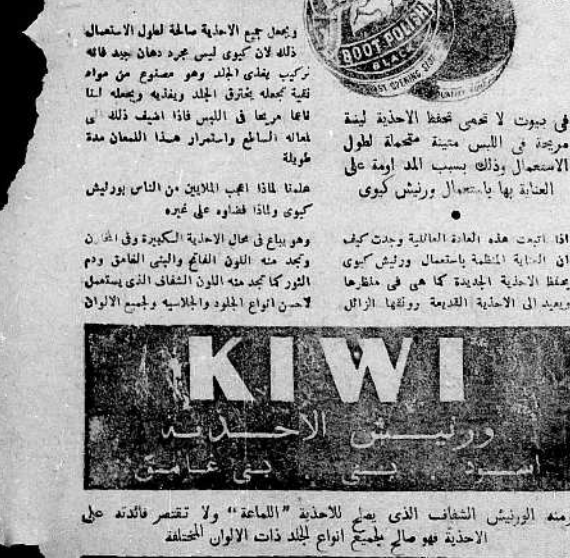 BOOT POLISH
BLACK
في بيوت لا تحصى تحفظ الاحذية لينة
مريحة في اللبس متينة متحملة لطول
الاستعمال وذلك بسبب المداومة على
العناية بها باستعمال ورنيش كيوى
اذا اتبعت هذه العادة العائلية وجدت كيف
ان العناية المنظمة باستعمال ورنيش كيوى
يحفظ الاحذية الجديدة كما هى فى منظرها
ويعيد الى الاحذية القديمة رونقها الزائل
ويجعل جميع الاحذية صالحة لطول الاستعمال
ذلك لان كيوى ليس مجرد دهان جيد فانه
تركيب يغذى الجلد وهو مصنوع من مواد
نقية تجعله يخترق الجلد ويغذيه ويجعله لينا
ناعما مريحا فى اللبس فاذا اضيف ذلك الى
لمعانه الساطع واستمرار هذا اللمعان مدة
طويلة
علمنا لماذا اعجب الملايين من الناس بورنيش
كيوى ولماذا فضلوه على غيره
وهو يباع فى محال الاحذية الكبيرة وفى المخازن
وتجد منه اللون الفاتح والبنى الغامق ودم
الثور كما تجد منه اللون الشفاف الذى يستعمل
لاحسن انواع الجلود والجلاسيه ولجميع الالوان
KIWI
ورنيش الاحذية
اسود . بنى . بنى غامق
ومنه الورنيش الشفاف الذى يصلح للاحذية "اللماعة" ولا تقتصر فائدته على
الاحذية فهو صالح لجميع انواع الجلد ذات الالوان المختلفة